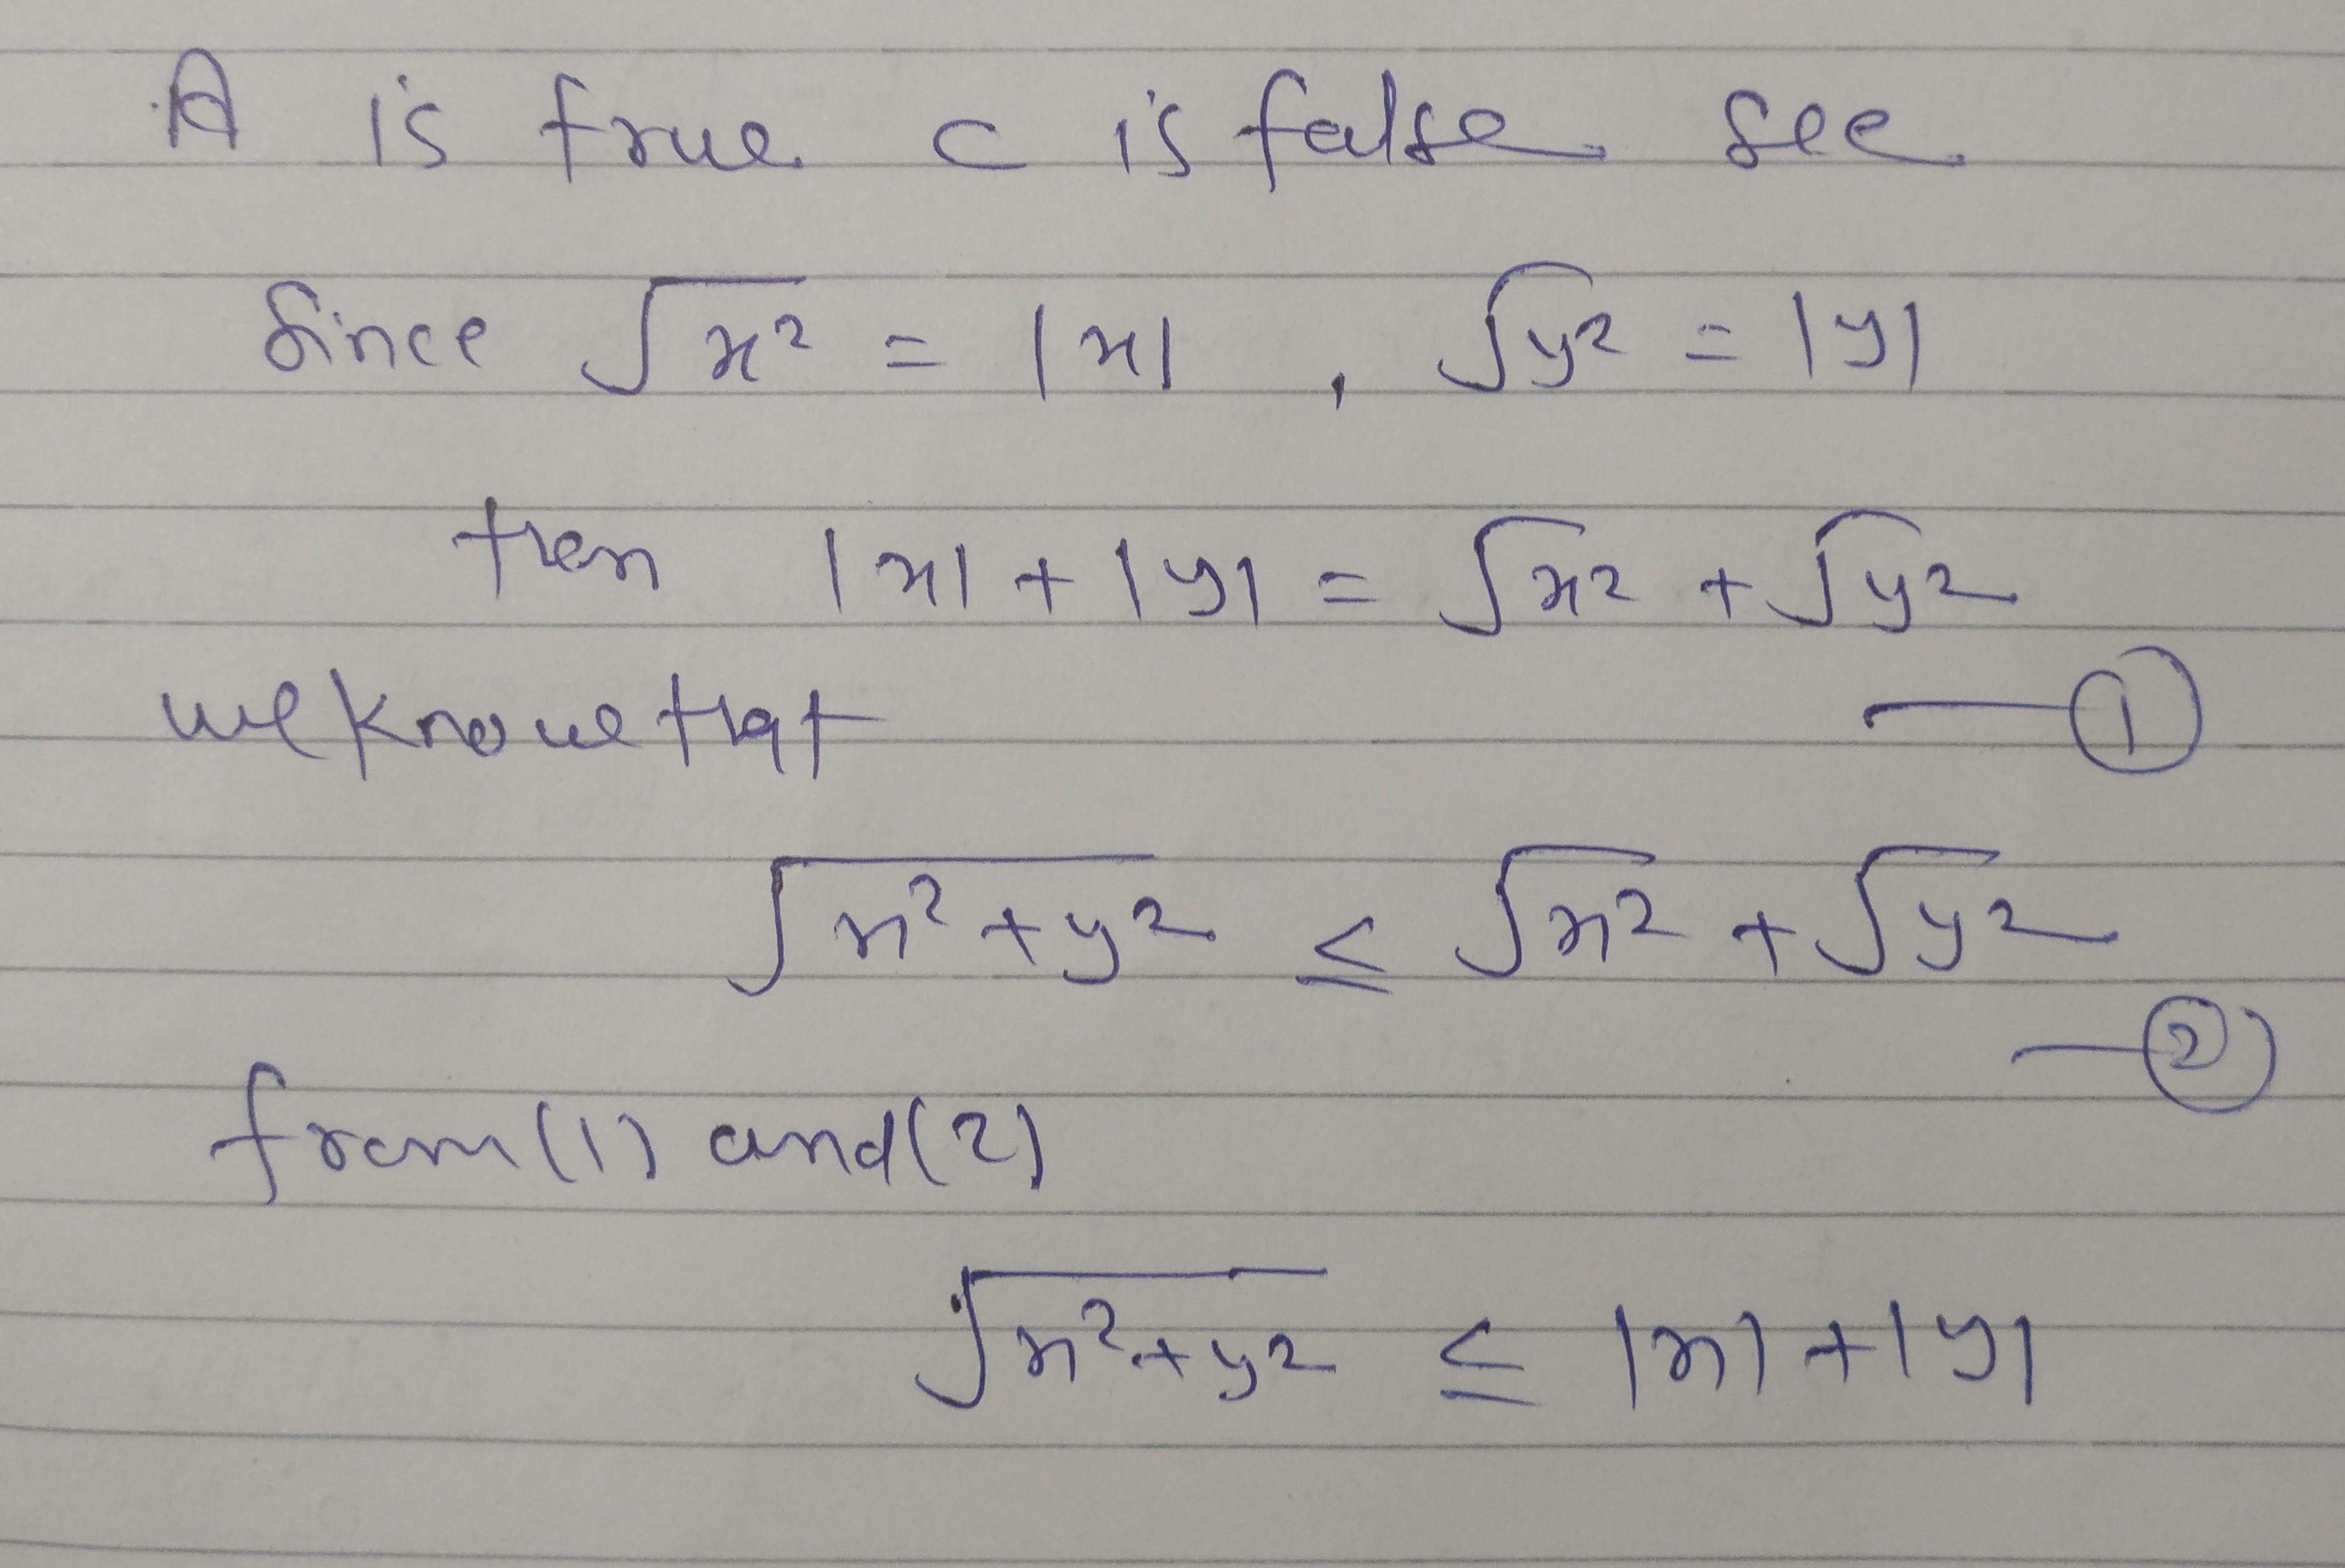 A is true c is false see
Since √x² = |x| , √y² = |y|
then |x| + |y| = √x² + √y²
we know that —①
√x²+y² ≤ √x² + √y²
—②
from (1) and (2)
√x²+y² ≤ |x| + |y|